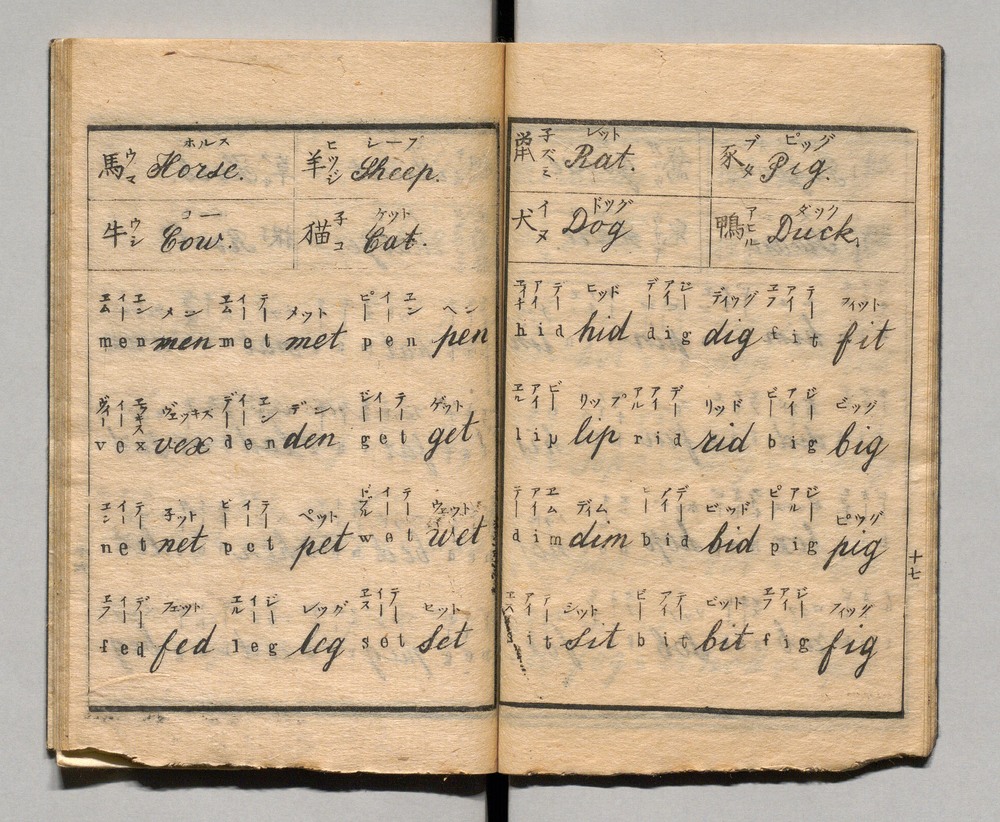 ホルス
馬 ウマ Horse.
ヒツジ シープ
羊 Sheep.
コー
牛 ウシ Cow.
ケット
猫 子コ Cat.
エム イー エン メン エム イー テー メット ピー イー エン ペン
men men met met pen pen
ヴィー イー エッキス ヴェッキス デー イー エン デン ジー イー テー ゲット
vex vex den den get get
エン イー テー 子ット ピー イー テー ペット ドブル イー テー ウェット
net net pet pet wet wet
エフ イー デー フェット エル イー ジー レッグ エス イー テー セット
fed fed leg leg set set
レット
子ズミ Rat.
ピッグ
豕 ブタ Pig.
ドッグ
犬 イヌ Dog
ダック
鴨 アヒル Duck.
エイキ アイ デー ヒッド デー アイ ジー ディッグ エフ アイ テー フィット
hid hid dig dig fit fit
エル アイ ピー リップ アル アイ デー リッド ビー アイ ジー ビッグ
lip lip rid rid big big
デー アイ エム ディム ビー アイ デー ビッド ピー アイ ジー ピッグ
dim dim bid bid pig pig
エス アイ テー シット ビー アイ テー ビット エフ アイ ジー フィッグ
it sit bit bit fig fig
十七